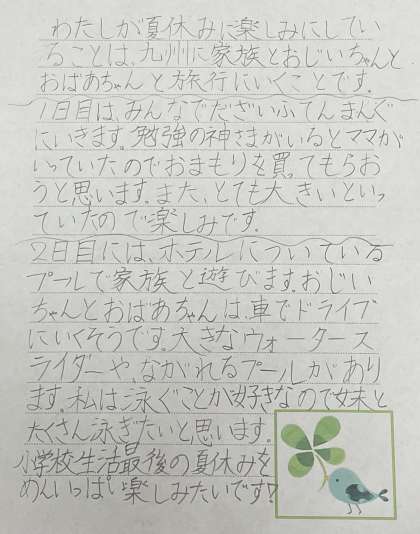 わたしが夏休みに楽しみにしてい
ることは、九州に家族とおじいちゃんと
おばあちゃんと旅行にいくことです。
1日目は、みんなでだざいふてんまんぐ
にいきます。勉強の神さまがいるとママが
いっていたのでおまもりを買ってもらお
うと思います。また、とても大きいといっ
ていたので楽しみです。
2日目には、ホテルについている
プールで家族と遊びます。おじい
ちゃんとおばあちゃんは、車でドライブ
にいくそうです。大きなウォータース
ライダーや、ながれるプールがあり
ます。私は泳ぐことが好きなので妹と
たくさん泳ぎたいと思います。
小学校生活最後の夏休みを
めいいっぱい楽しみたいです!